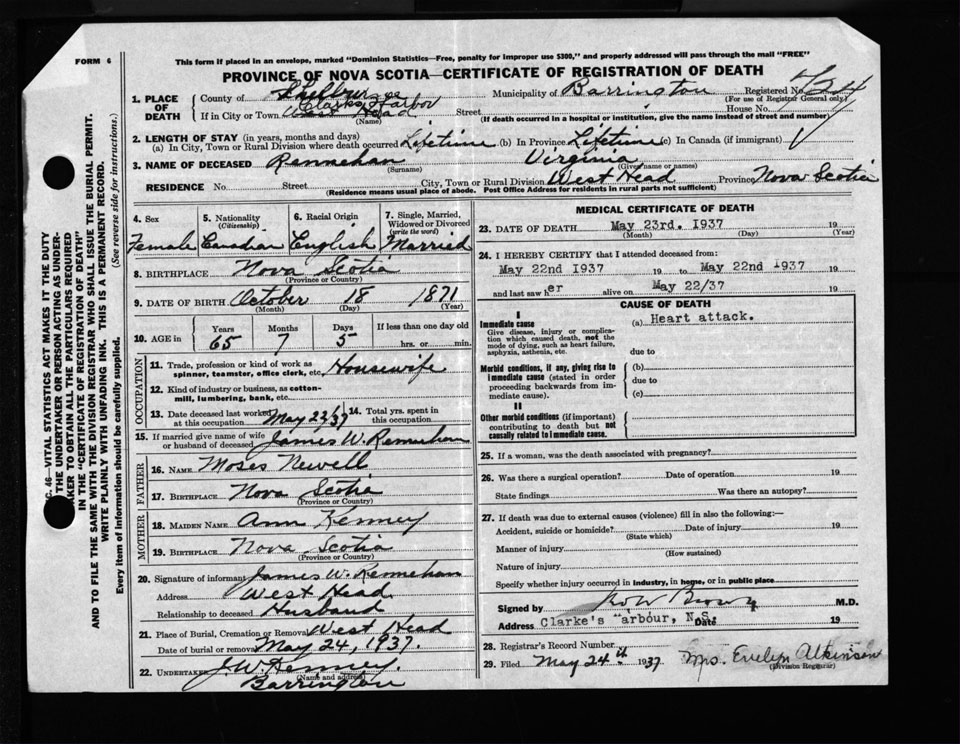 FORM 6
This form if placed in an envelope, marked "Dominion Statistics—Free, penalty for improper use $300," and properly addressed will pass through the mail "FREE"
PROVINCE OF NOVA SCOTIA—CERTIFICATE OF REGISTRATION OF DEATH
1. PLACE OF DEATH
County of Shelburne Municipality of Barrington Registered No.
(For use of Registrar General only)
Clarks Harbor
If in City or Town West Head Street House No.
(Name) (If death occurred in a hospital or institution, give the name instead of street and number)
2. LENGTH OF STAY (in years, months and days)
(a) In City, Town or Rural Division where death occurred Lifetime (b) In Province Lifetime (c) In Canada (if immigrant)
3. NAME OF DECEASED Rennehan Virginia
(Surname) (Given name or names)
RESIDENCE No. Street City, Town or Rural Division West Head Province Nova Scotia
(Residence means usual place of abode. Post Office Address for residents in rural parts not sufficient)
4. Sex Female
5. Nationality (Citizenship) Canadian
6. Racial Origin English
7. Single, Married, Widowed or Divorced (write the word) Married
8. BIRTHPLACE Nova Scotia
(Province or Country)
9. DATE OF BIRTH October 18 1871
(Month) (Day) (Year)
10. AGE in Years 65 Months 7 Days 5 If less than one day old hrs. or min.
OCCUPATION
11. Trade, profession or kind of work as spinner, teamster, office clerk, etc. Housewife
12. Kind of industry or business, as cotton-mill, lumbering, bank, etc.
13. Date deceased last worked at this occupation May 22/37
14. Total yrs. spent in this occupation
15. If married give name of wife or husband of deceased James W. Rennehan
FATHER
16. NAME Moses Newell
17. BIRTHPLACE Nova Scotia
(Province or Country)
MOTHER
18. MAIDEN NAME Ann Kenney
19. BIRTHPLACE Nova Scotia
(Province or Country)
20. Signature of informant James W. Rennehan
Address West Head
Relationship to deceased Husband
21. Place of Burial, Cremation or Removal West Head
Date of burial or removal May 24, 1937.
22. UNDERTAKER J.W. Kenney.
(Name and address)
Barrington
MEDICAL CERTIFICATE OF DEATH
23. DATE OF DEATH May 23rd. 1937 19
(Month) (Day) (Year)
24. I HEREBY CERTIFY that I attended deceased from:
May 22nd 1937 19 to May 22nd 1937 19
and last saw her alive on May 22/37 19
CAUSE OF DEATH
I
Immediate cause (a) Heart attack.
Give disease, injury or complication which caused death, not the mode of dying, such as heart failure, asphyxia, asthenia, etc.
due to
Morbid conditions, if any, giving rise to immediate cause (stated in order proceeding backwards from immediate cause).
(b)
due to
(c)
II
Other morbid conditions (if important) contributing to death but not causally related to immediate cause.
25. If a woman, was the death associated with pregnancy?
26. Was there a surgical operation? Date of operation 19
State findings Was there an autopsy?
27. If death was due to external causes (violence) fill in also the following:—
Accident, suicide or homicide? Date of injury 19
(State which)
Manner of injury
(How sustained)
Nature of injury
Specify whether injury occurred in industry, in home, or in public place
Signed by Brown M.D.
Address Clarke's arbour, N.S. Date 19
28. Registrar's Record Number
29. Filed May 24th 1937 Mrs. Evelyn Atkinson
(Division Registrar)
C. 46—VITAL STATISTICS ACT MAKES IT THE DUTY
THE UNDERTAKER OR PERSON ACTING AS UNDER-
KER TO OBTAIN ALL THE PARTICULARS REQUIRED
IN THE "CERTIFICATE OF REGISTRATION OF DEATH"
AND TO FILE THE SAME WITH THE DIVISION REGISTRAR WHO SHALL ISSUE THE BURIAL PERMIT.
WRITE PLAINLY WITH UNFADING INK. THIS IS A PERMANENT RECORD.
Every item of information should be carefully supplied. (See reverse side for instructions.)